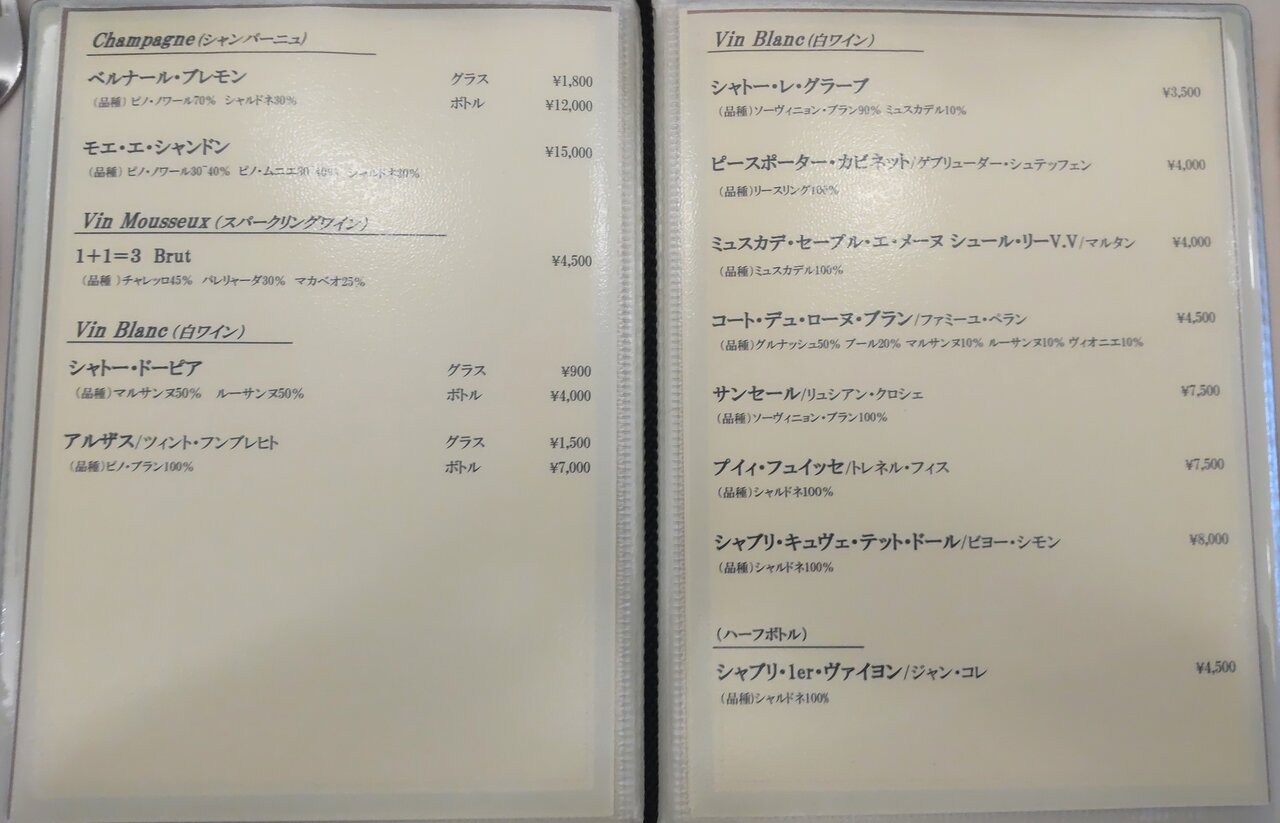 Champagne(シャンパーニュ)
ベルナール・ブレモン グラス ¥1,800
(品種) ピノ・ノワール70% シャルドネ30% ボトル ¥12,000
モエ・エ・シャンドン ¥15,000
(品種) ピノ・ノワール30~40% ピノ・ムニエ30~40% シャルドネ30%
Vin Mousseux(スパークリングワイン)
1+1=3 Brut ¥4,500
(品種)チャレッロ45% パレリャーダ30% マカベオ25%
Vin Blanc(白ワイン)
シャトー・ドーピア グラス ¥900
(品種)マルサンヌ50% ルーサンヌ50% ボトル ¥4,000
アルザス/ツィント・フンブレヒト グラス ¥1,500
(品種)ピノ・ブラン100% ボトル ¥7,000
Vin Blanc(白ワイン)
シャトー・レ・グラーブ ¥3,500
(品種)ソーヴィニョン・ブラン90% ミュスカデル10%
ピースポーター・カビネット/ゲブリューダー・シュテッフェン ¥4,000
(品種)リースリング100%
ミュスカデ・セーブル・エ・メーヌ シュール・リーV.V/マルタン ¥4,000
(品種)ミュスカデル100%
コート・デュ・ローヌ・ブラン/ファミーユ・ペラン ¥4,500
(品種)グルナッシュ50% ブール20% マルサンヌ10% ルーサンヌ10% ヴィオニエ10%
サンセール/リュシアン・クロシェ ¥7,500
(品種)ソーヴィニョン・ブラン100%
プイィ・フュイッセ/トレネル・フィス ¥7,500
(品種)シャルドネ100%
シャブリ・キュヴェ・テット・ドール/ビヨー・シモン ¥8,000
(品種)シャルドネ100%
(ハーフボトル)
シャブリ・1er・ヴァイヨン/ジャン・コレ ¥4,500
(品種)シャルドネ100%